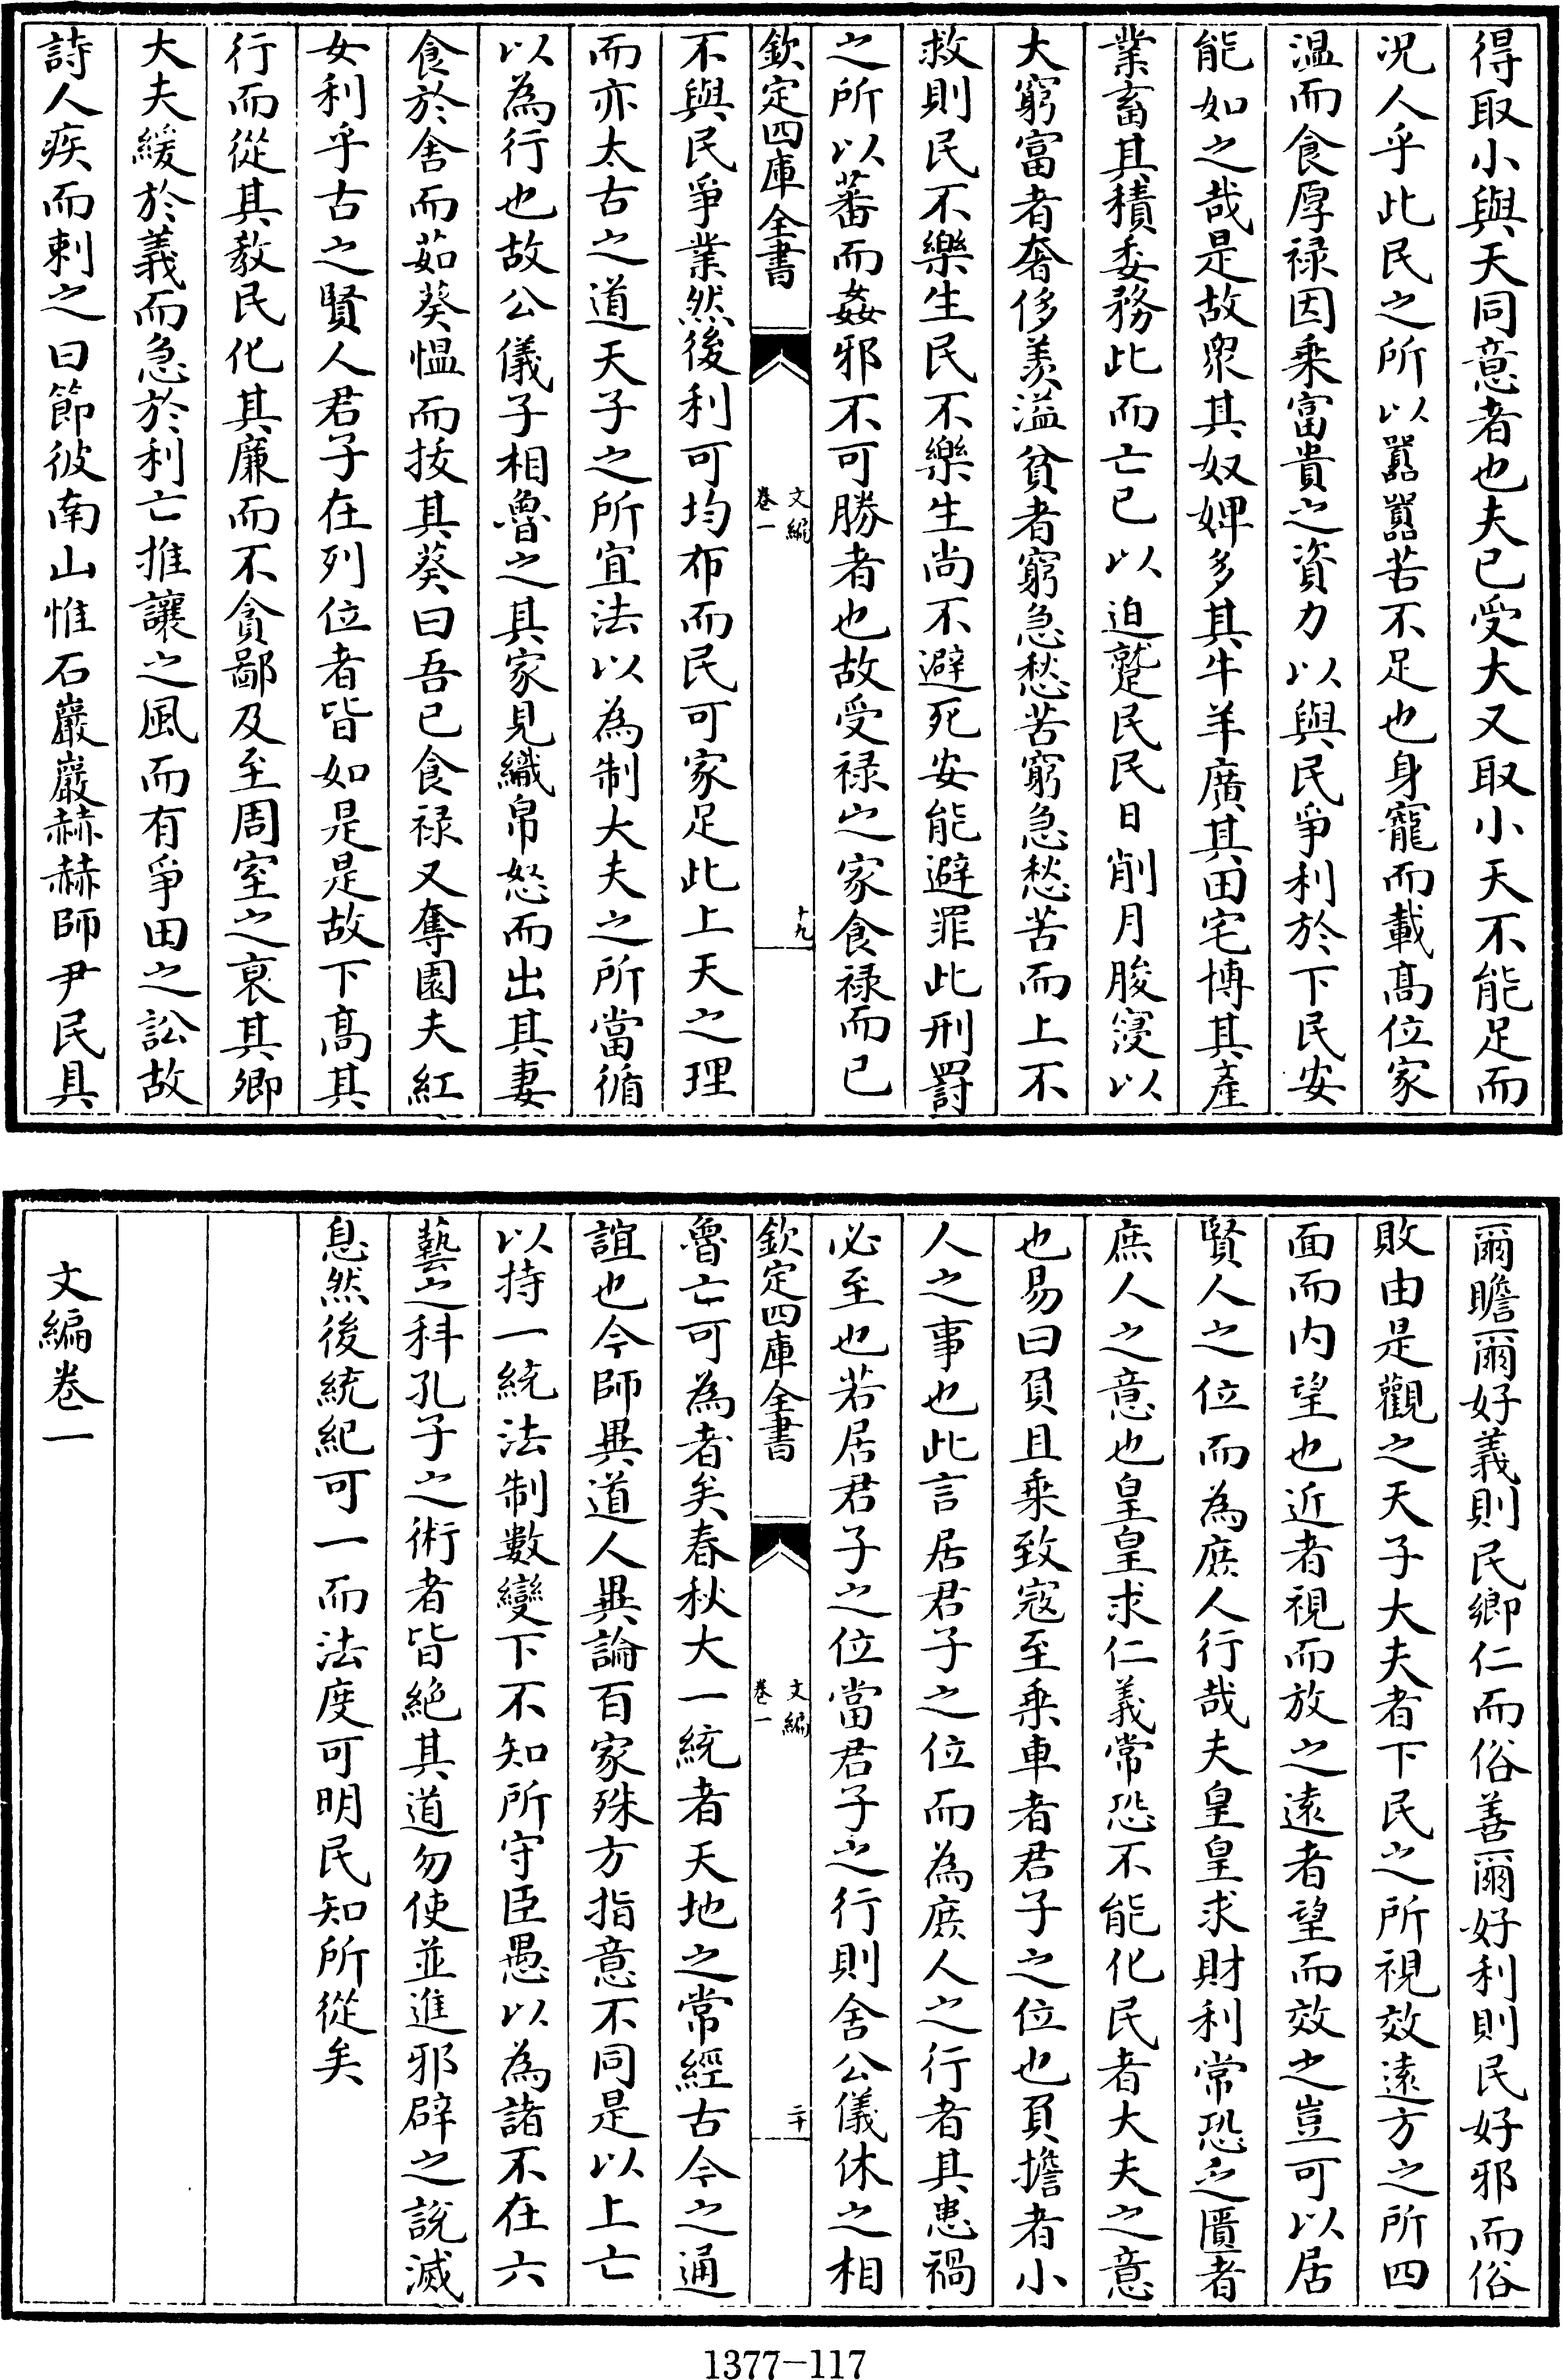 得取小與天同意者也夫已受大又取小天不能足而
况人乎此民之所以囂囂苦不足也身寵而載髙位家
温而食厚禄因乘富貴之資力以與民爭利於下民安
能如之哉是故衆其奴婢多其牛羊廣其田宅博其產
業畜其積委務此而亡已以迫蹵民民日削月朘寖以
大窮富者奢侈羡溢貧者窮急愁苦窮急愁苦而上不
救則民不樂生民不樂生尚不避死安能避罪此刑罰
之所以蕃而姦邪不可勝者也故受禄之家食禄而已
欽定四庫全書
文編
卷一
十九
不與民爭業然後利可均布而民可家足此上天之理
而亦太古之道天子之所宜法以為制大夫之所當循
以為行也故公儀子相魯之其家見織帛怒而出其妻
食於舍而茹葵愠而拔其葵曰吾已食禄又奪園夫紅
女利乎古之賢人君子在列位者皆如是是故下髙其
行而從其教民化其廉而不貪鄙及至周室之衰其卿
大夫緩於義而急於利亡推讓之風而有爭田之訟故
詩人疾而刺之曰節彼南山惟石巖巖赫赫師尹民具
爾瞻爾好義則民鄉仁而俗善爾好利則民好邪而俗
敗由是觀之天子大夫者下民之所視效遠方之所四
面而内望也近者視而放之遠者望而效之豈可以居
賢人之位而為庶人行哉夫皇皇求財利常恐之匱者
庶人之意也皇皇求仁義常恐不能化民者大夫之意
也易曰負且乘致寇至乘車者君子之位也負擔者小
人之事也此言居君子之位而為庶人之行者其患禍
必至也若居君子之位當君子之行則舍公儀休之相
欽定四庫全書
文編
卷一
二十
魯亡可為者矣春秋大一統者天地之常經古今之通
誼也今師異道人異論百家殊方指意不同是以上亡
以持一統法制數變下不知所守臣愚以為諸不在六
藝之科孔子之術者皆絶其道勿使並進邪辟之說滅
息然後統紀可一而法度可明民知所從矣
文編卷一
1377-117